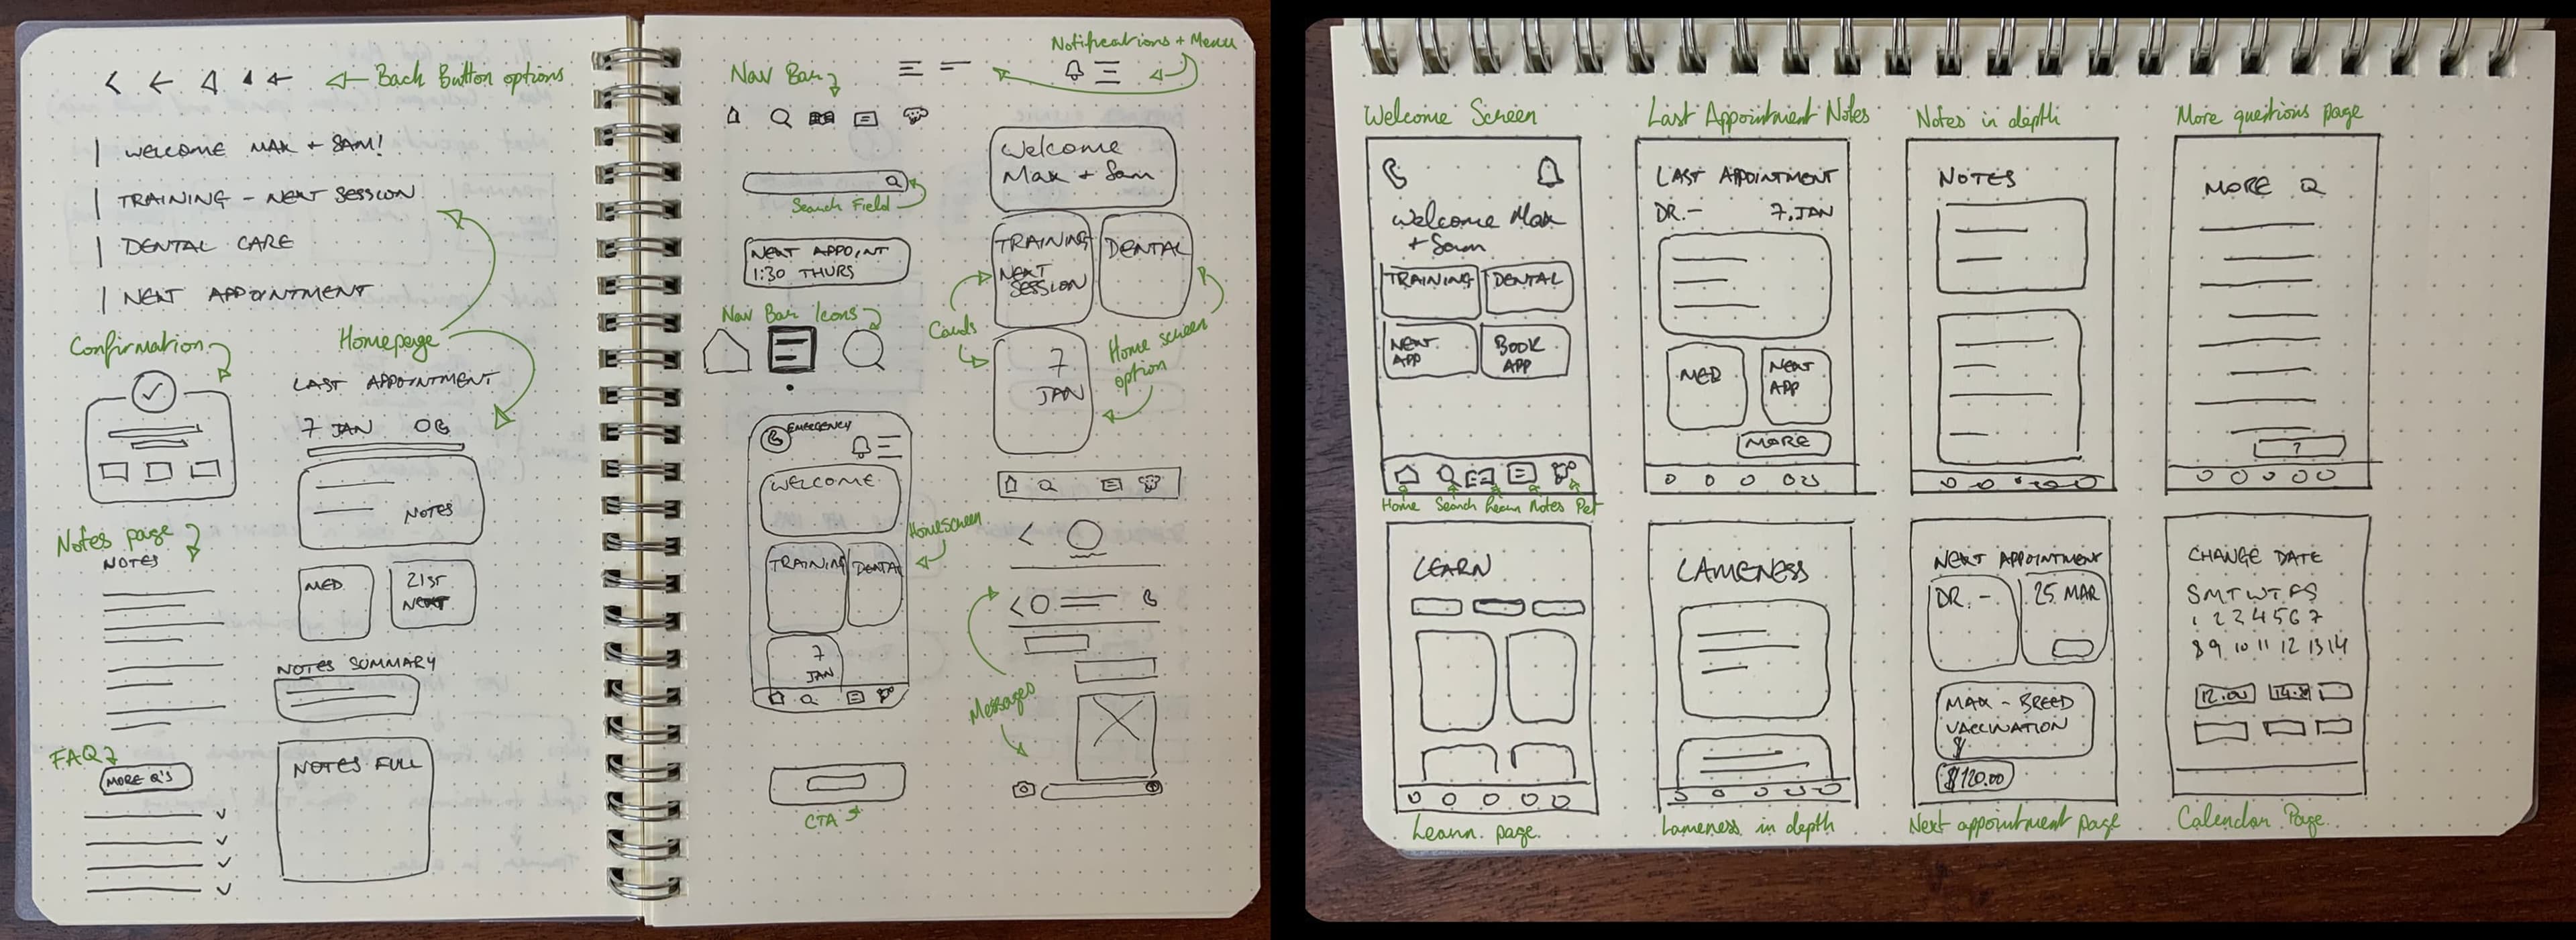 Back Button options
WELCOME MAX + SAM!
TRAINING - NEXT SESSION
DENTAL CARE
NEXT APPOINTMENT
Confirmation
Homepage
LAST APPOINTMENT
7 JAN
NOTES
MED
21ST
NEXT
Notes page
NOTES
NOTES SUMMARY
NOTES FULL
FAQ
MORE Q'S
Nav Bar
Notifications + Menu
Search Field
NEXT APPOINT
1:30 THURS
Nav Bar Icons
Welcome
Max + Sam
TRAINING
NEXT
SESSION
DENTAL
Cards
7
JAN
Home screen
option
EMERGENCY
WELCOME
TRAINING
DENTAL
7
JAN
Homescreen
Messages
CTA
Welcome Screen
Welcome Max
+ Sam
TRAINING
DENTAL
NEXT
APP
BOOK
APP
Home Search Learn Notes Pet
Last Appointment Notes
LAST APPOINTMENT
DR.- 7.JAN
MED
NEXT
APP
MORE
Notes in depth
NOTES
More questions page
MORE Q
?
LEARN
Learn page
LAMENESS
Lameness in depth
NEXT APPOINTMENT
DR.-
25 MAR
MAX - BREED
VACCINATION
$
$120.00
Next appointment page
CHANGE DATE
S M T W T F S
1 2 3 4 5 6 7
8 9 10 11 12 13 14
12.00
Calendar Page